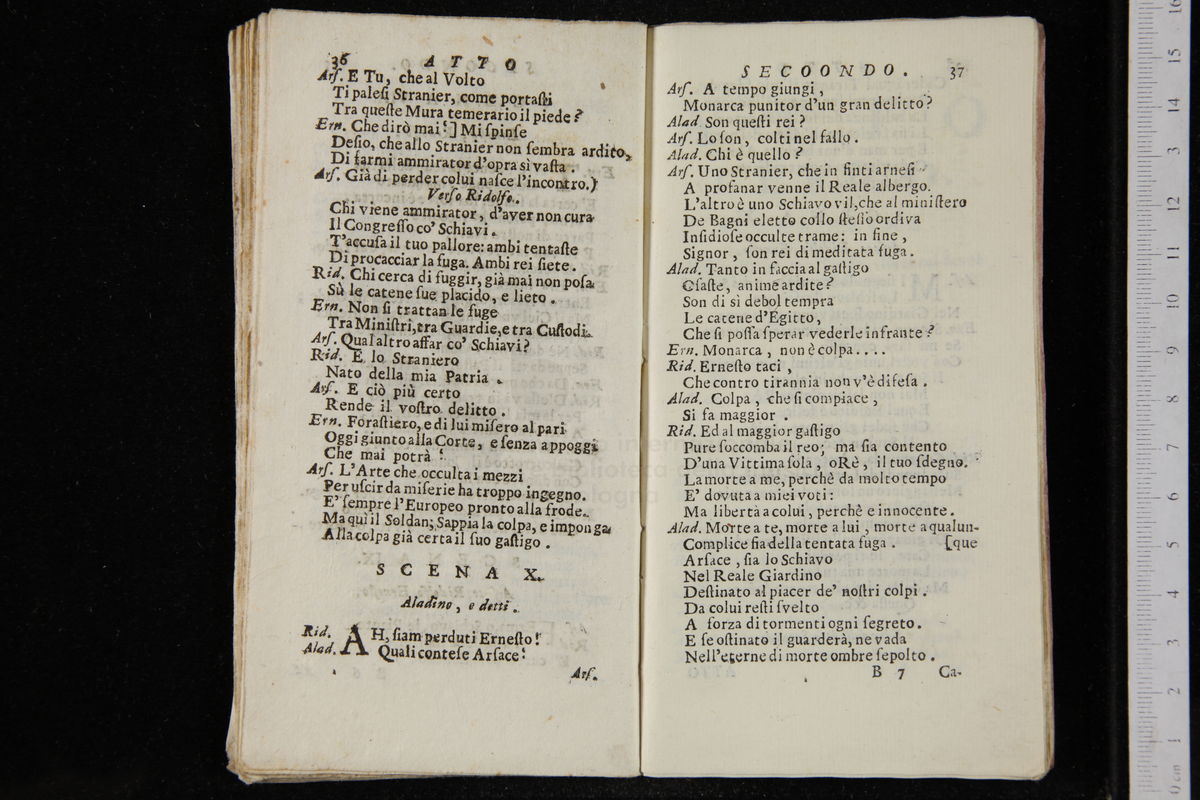 36 ATTO
Arſ. E Tu, che al Volto
Ti paleſi Stranier, come portaſti
Tra queſte Mura temerario il piede?
Ern. Che dirò mai!] Mi ſpinſe
Deſio, che allo Stranier non ſembra ardito,
Di farmi ammirator d'opra sì vaſta.
Arſ. Già di perder colui naſce l'incontro.)
Verſo Ridolfo.
Chi viene ammirator, d'aver non cura
Il Congreſſo co' Schiavi.
T'accuſa il tuo pallore: ambi tentaſte
Di procacciar la fuga. Ambi rei ſiete.
Rid. Chi cerca di fuggir, già mai non poſa
Sù le catene ſue placido, e lieto.
Ern. Non ſi trattan le fuge
Tra Miniſtri, tra Guardie, e tra Cuſtodi.
Arſ. Qual altro affar co' Schiavi?
Rid. E lo Straniero
Nato della mia Patria.
Arſ. E ciò più certo
Rende il voſtro delitto.
Ern. Foraſtiero, e di lui miſero al pari
Oggi giunto alla Corte, e ſenza appoggi
Che mai potrà!
Arſ. L'Arte che occulta i mezzi
Per uſcir da miſerie ha troppo ingegno.
E' ſempre l'Europeo pronto alla frode.
Ma quì il Soldan; Sappia la colpa, e imponga
Alla colpa già certa il ſuo gaſtigo.
SCENA X.
Aladino, e detti.
Rid. AH, ſiam perduti Erneſto!
Alad. Quali conteſe Arſace!
Arſ.
SECOONDO. 37
Arſ. A tempo giungi,
Monarca punitor d'un gran delitto?
Alad Son queſti rei?
Arſ. Lo ſon, colti nel fallo.
Alad. Chi è quello?
Arſ. Uno Stranier, che in finti arneſi
A profanar venne il Reale albergo.
L'altro è uno Schiavo vil, che al miniſtero
De Bagni eletto collo ſteſſo ordiva
Inſidioſe occulte trame: in fine,
Signor, ſon rei di meditata fuga.
Alad. Tanto in faccia al gaſtigo
Oſaſte, anime ardite?
Son di sì debol tempra
Le catene d'Egitto,
Che ſi poſſa ſperar vederle infrante?
Ern. Monarca, non è colpa....
Rid. Erneſto taci,
Che contro tirannia non v'è difeſa.
Alad. Colpa, che ſi compiace,
Si fa maggior.
Rid. Ed al maggior gaſtigo
Pure ſoccomba il reo; ma ſia contento
D'una Vittima ſola, oRè, il tuo ſdegno.
La morte a me, perchè da molto tempo
E' dovuta a miei voti:
Ma libertà a colui, perchè e innocente.
Alad. Morte a te, morte a lui, morte a qualun-
Complice ſia della tentata fuga. [que
Arſace, ſia lo Schiavo
Nel Reale Giardino
Deſtinato al piacer de' noſtri colpi.
Da colui reſti ſvelto
A forza di tormenti ogni ſegreto.
E ſe oſtinato il guarderà, ne vada
Nell'eterne di morte ombre ſepolto.
B 7 Ca-